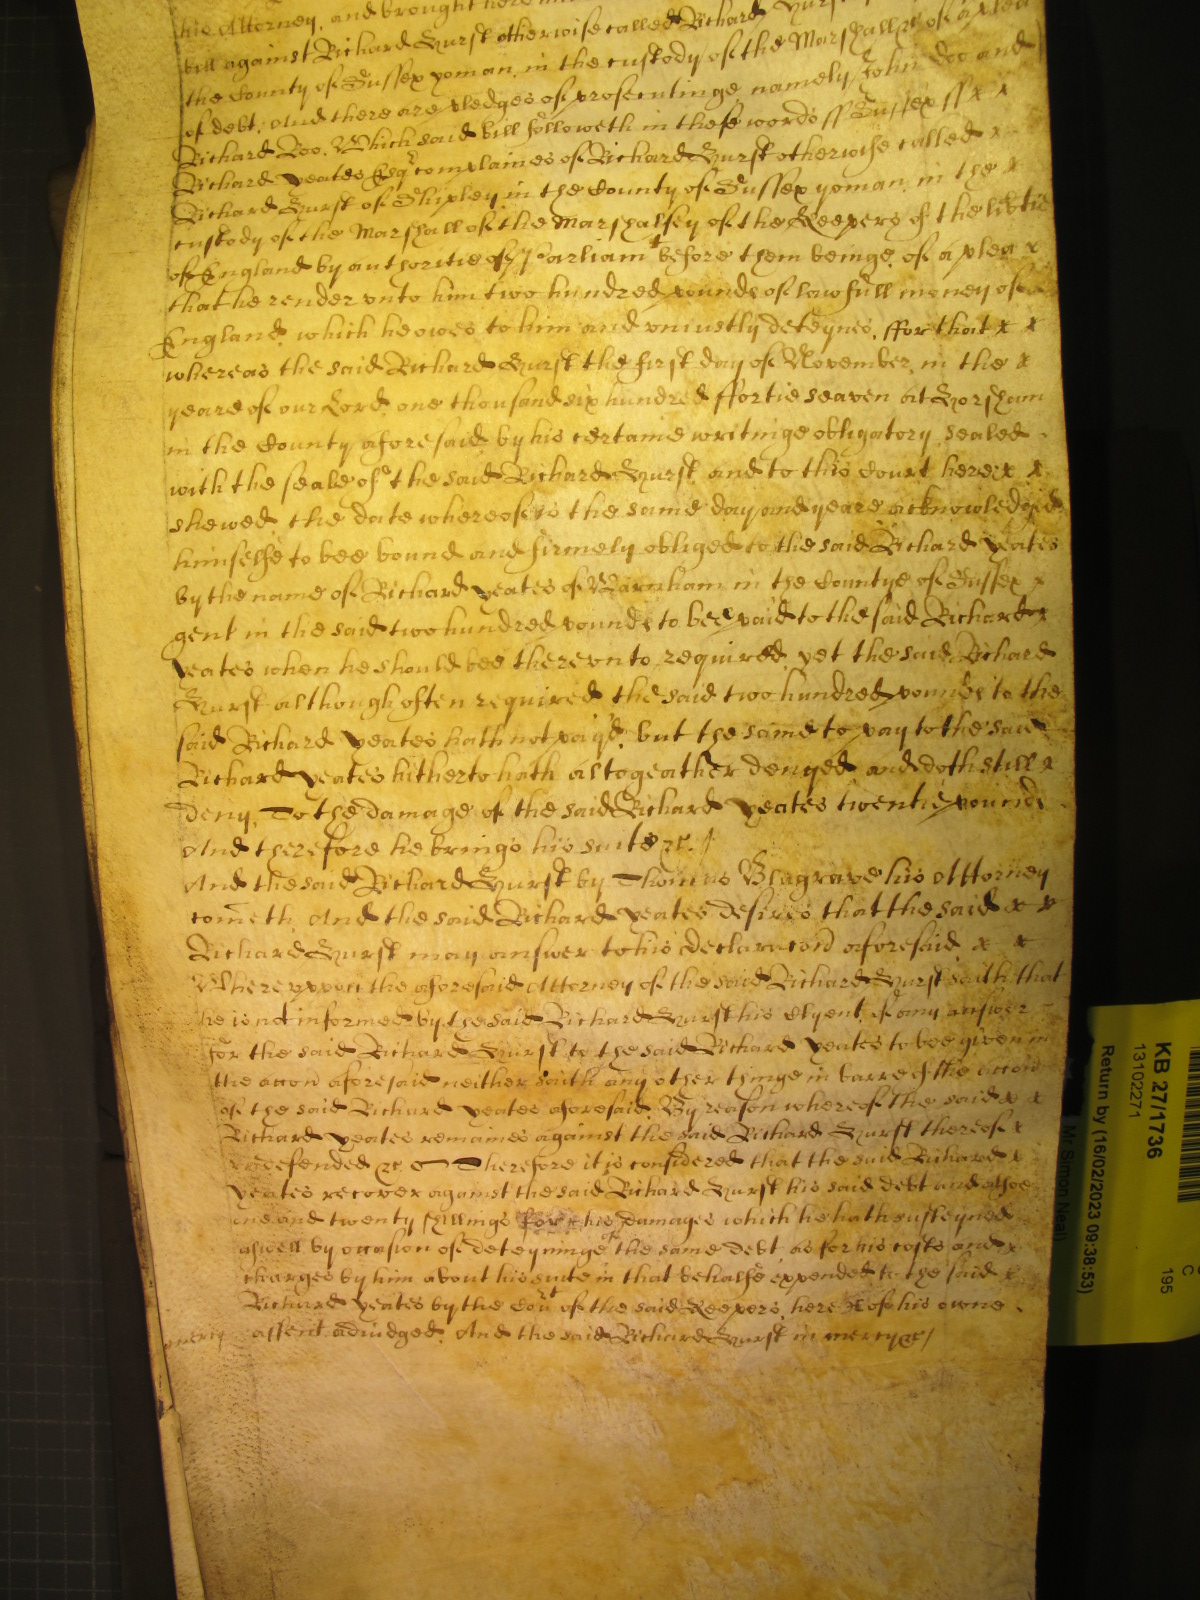 his Attorney, and brought here
bill against Richard Hurst otherwise called Richard Hurst
the County of Sussex yoman, in the custody of the Marshall &c of a plea
of debt, And there are pledges of prosecutinge namely John Doo and
Richard Roo. Which said bill followeth in these words ss Sussex ss x x
Richard Yeates Esqr complaines of Richard Hurst otherwise called x
Richard Hurst of Shipley in the County of Sussex yoman, in the x
custody of the Marshall of the Marshalsey of the Keepers of the libtie
of England by authoritie of Parliamt before them beinge, of a plea x
that he render unto him two hundred pounds of lawfull money of
England, which he owes to him and uniustly deteynes, ffor that x x
whereas the said Richard Hurst the first day of November, in the x
yeare of our Lord, one thousand six hundred ffortie seaven at Horsham
in the County aforesaid, by his certaine writinge obligatory sealed
with the seale of the said Richard Hurst, and to this Court here x x
shewed, the date whereof is the same day and yeare acknowledged
himselfe to bee bound and firmely obliged to the said Richard Yeates
by the name of Richard Yeates of Warnham in the Countye of Sussex x
gent in the said two hundred pounds to bee paid to the said Richard x
Yeates when he should bee thereunto required, yet the said Richard
Hurst although often required the said two hundred pounds to the
said Richard Yeates hath not payd, but the same to pay to the said
Richard Yeates hitherto hath altogeather denyed, and doth still x
deny, To the damage of the said Richard Yeates twentie pounds
And therefore he brings his suite &c. /
And the said Richard Hurst by Thomas Blagrave his Attorney
cometh, And the said Richard Yeates desires that the said x x
Richard Hurst may answer to his declaracon aforesaid, x x
Whereuppon the aforesaid Attorney of the said Richard Hurst saith that
he is not informed by the said Richard Hurst his Clyent, of any answer
for the said Richard Hurst to the said Richard Yeates to bee given in
the accon aforesaid neither saith any other thinge in barre of the accon
of the said Richard Yeates aforesaid, By reason whereof the said x x
Richard Yeates remaines against the said Richard Hurst thereof x
undefended &c Therefore it is considered that the said Richard x
Yeates recover against the said Richard Hurst his said debt and alsoe
one and twenty shillings for his damages which he hath susteyned
aswell by occasion of deteyninge of the same debt as for his costs and x
charges by him about his suite in that behalfe expended to the said x
Richard Yeates by the Court of the said Keepers, here of his owne
mercy assent adiudged. And the said Richard Hurst in mercy &c /
KB 27/1736
13102271
Return by (16/02/2023 09:38:53)
Mr Simon Neal
C
195